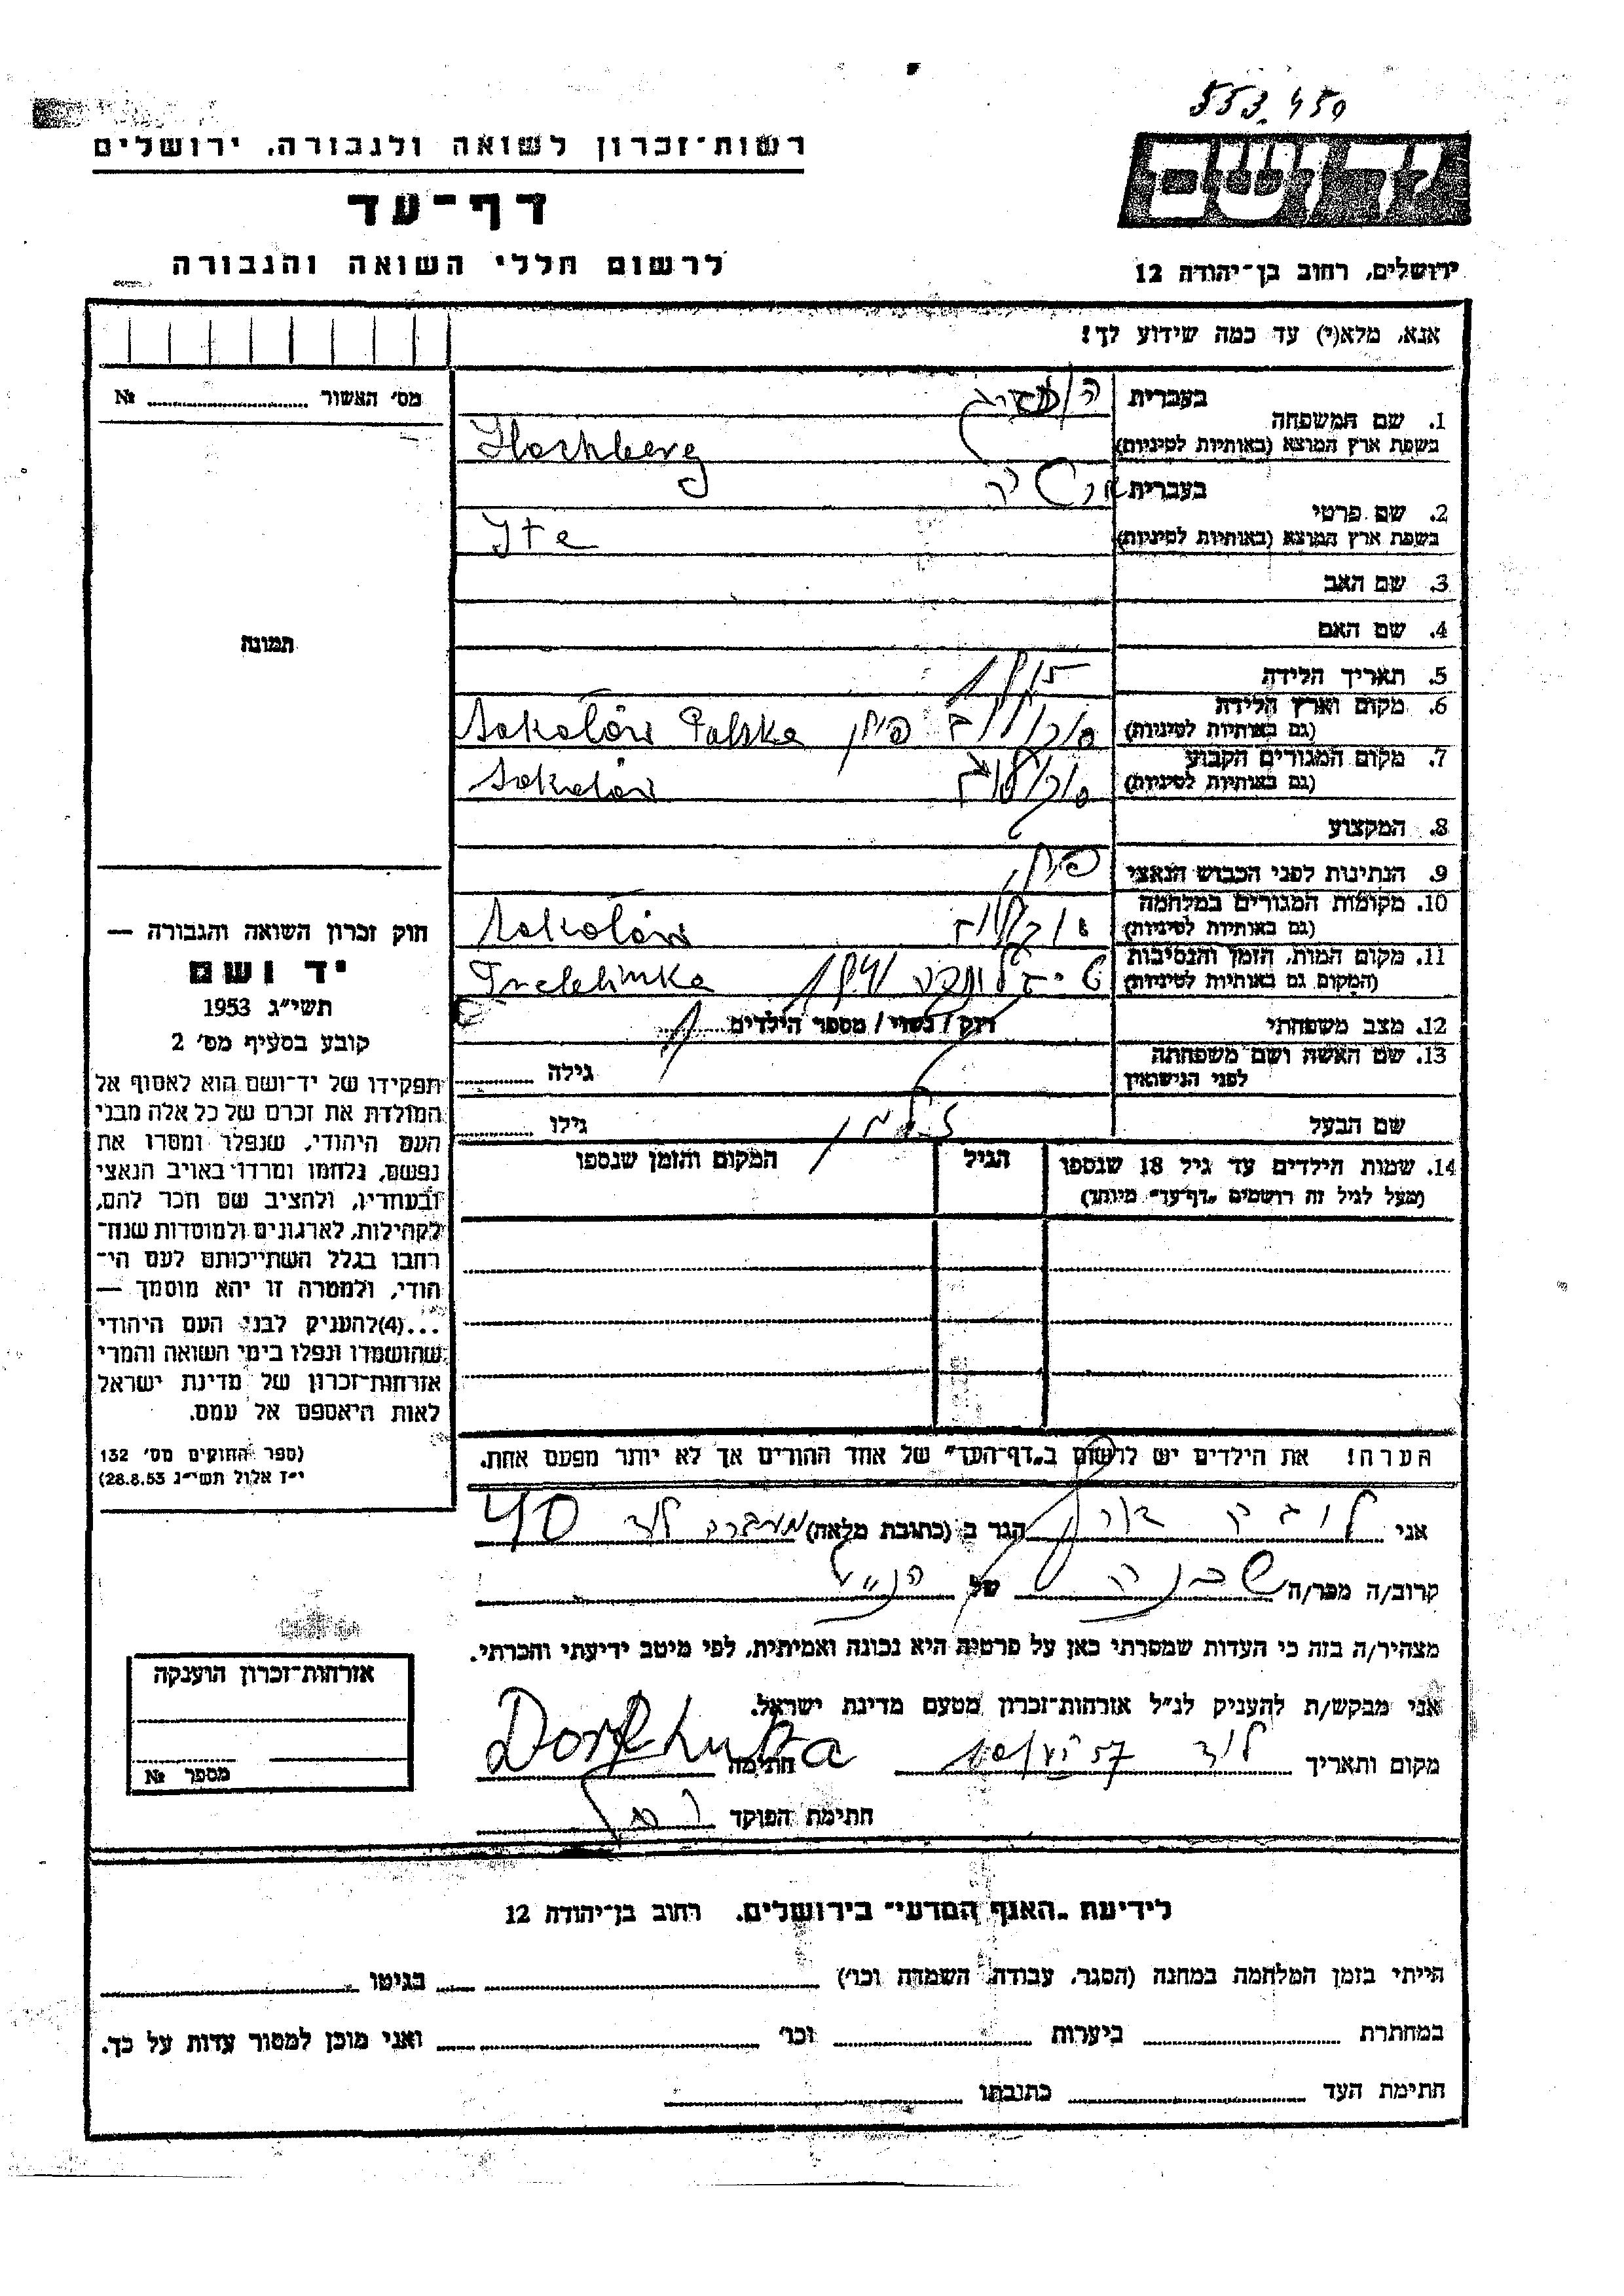 553.459
רשות־זכרון לשואה ולגבורה, ירושלים
דף־עד
לרשום חללי השואה והגבורה
ירושלים, רחוב בן־יהודה 12
אנא, מלא(י) עד כמה שידוע לך!
מס׳ האשור № 
1. שם המשפחה בעברית
בשפת ארץ המוצא (באותיות לטיניות) Hochberg
2. שם פרטי בעברית
בשפת ארץ המוצא (באותיות לטיניות) Ite
3. שם האב
4. שם האם
תמונה
5. תאריך הלידה 1915
6. מקום וארץ הלידה (גם באותיות לטיניות) סוקולוב פולין Sokolów Polska
7. מקום המגורים הקבוע (גם באותיות לטיניות) סוקולוב Sokolów
8. המקצוע
9. הנתינות לפני הכבוש הנאצי פולין
10. מקומות המגורים במלחמה (גם באותיות לטיניות) סוקולוב Sokolów
11. מקום המות, הזמן והנסיבות (המקום גם באותיות לטיניות) טרבלינקה Treblinka
12. מצב משפחתי רוק / נשוי / מספר הילדים 1
13. שם האשה ושם משפחתה לפני הנישואין גילה
שם הבעל זלמן גילו
14. שמות הילדים עד גיל 18 שנספו הגיל המקום והזמן שנספו
(מעל לגיל זה רושמים „דף־עד״ מיוחד)
חוק זכרון השואה והגבורה —
יד ושם
תשי״ג 1953
קובע בסעיף מס׳ 2
תפקידו של יד־ושם הוא לאסוף אל
המולדת את זכרם של כל אלה מבני
העם היהודי, שנפלו ומסרו את
נפשם, נלחמו ומרדו באויב הנאצי
ובעוזריו, ולהציב שם וזכר להם,
לקהילות, לארגונים ולמוסדות שנח־
רבו בגלל השתייכותם לעם הי־
הודי, ולמטרה זו יהא מוסמך —
...(4)להעניק לבני העם היהודי
שהושמדו ונפלו בימי השואה והמרי
אזרחות־זכרון של מדינת ישראל
לאות היאספם אל עמם.
(ספר החוקים מס׳ 132
י״ז אלול תשי״ג 28.8.53)
הערה! את הילדים יש לרשום ב„דף־העד״ של אחד ההורים אך לא יותר מפעם אחת.
אני דורף הגר ב (כתובת מלאה) מעברת לוד 40
קרוב/ה מכר/ה שכנה של הנ״ל
מצהיר/ה בזה כי העדות שמסרתי כאן על פרטיה היא נכונה ואמיתית, לפי מיטב ידיעתי והכרתי.
אני מבקש/ת להעניק לנ״ל אזרחות־זכרון מטעם מדינת ישראל.
מקום ותאריך לוד חתימה
חתימת הפוקד
אזרחות־זכרון הוענקה
מספר №
לידיעת „האגף המדעי״ בירושלים, רחוב בן־יהודה 12
הייתי בזמן המלחמה במחנה (הסגר, עבודה, השמדה וכו׳) בגיטו
במחתרת ביערות וכו׳ ואני מוכן למסור עדות על כך.
חתימת העד כתובתו